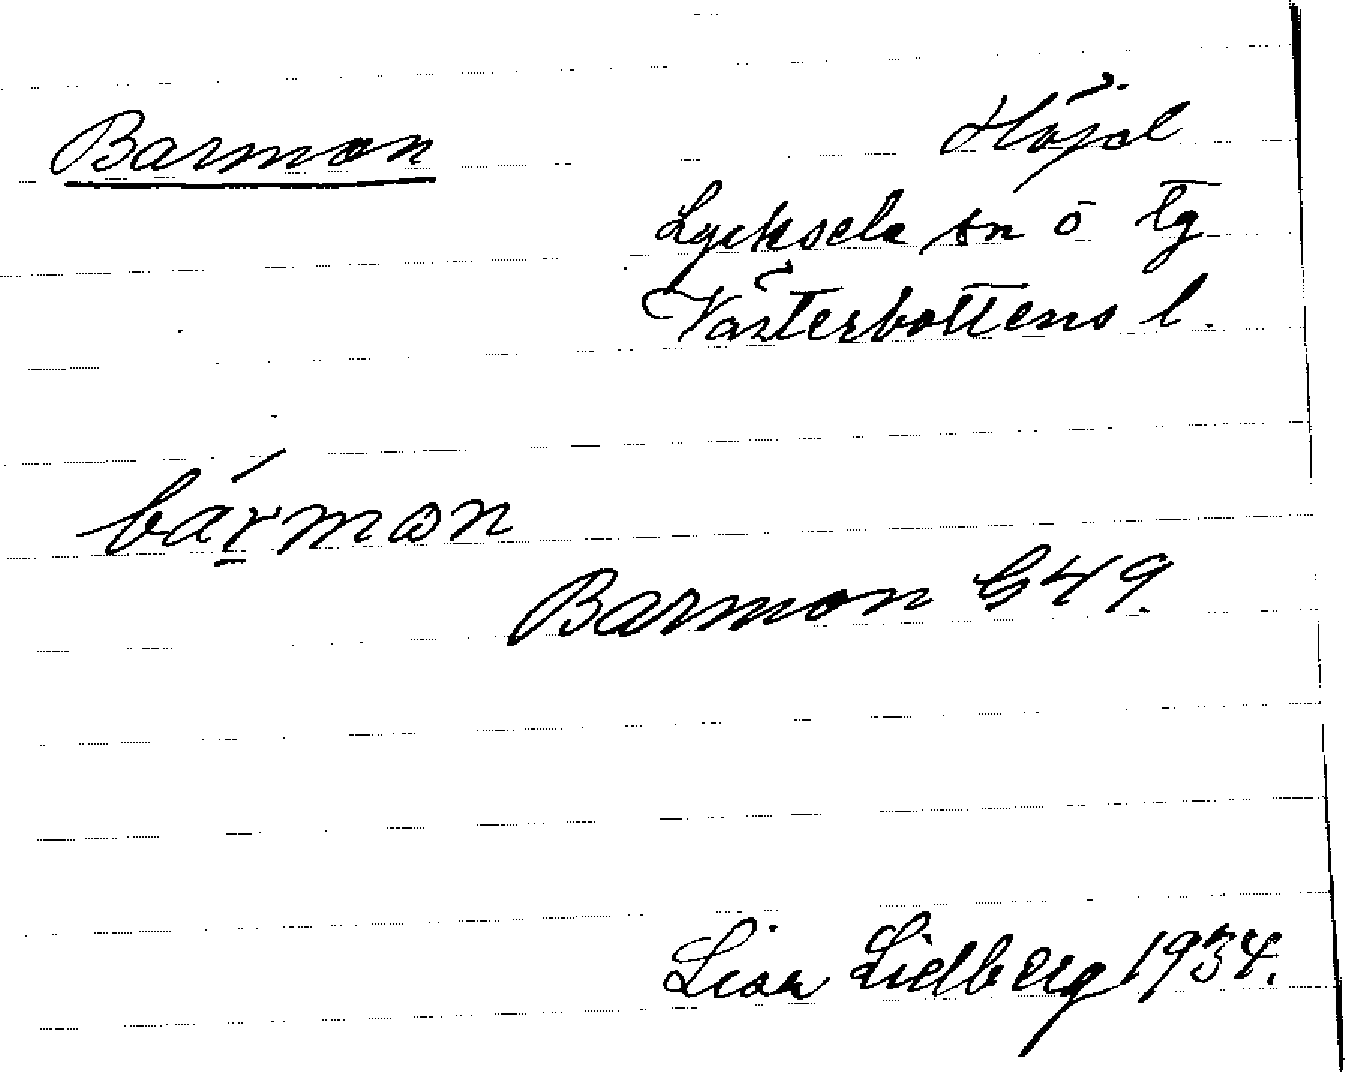 Barmon
Höjd
Lycksele sn o tg
Västerbottens l.
bármɷn
Barmon G49.
Lidberg 1934.